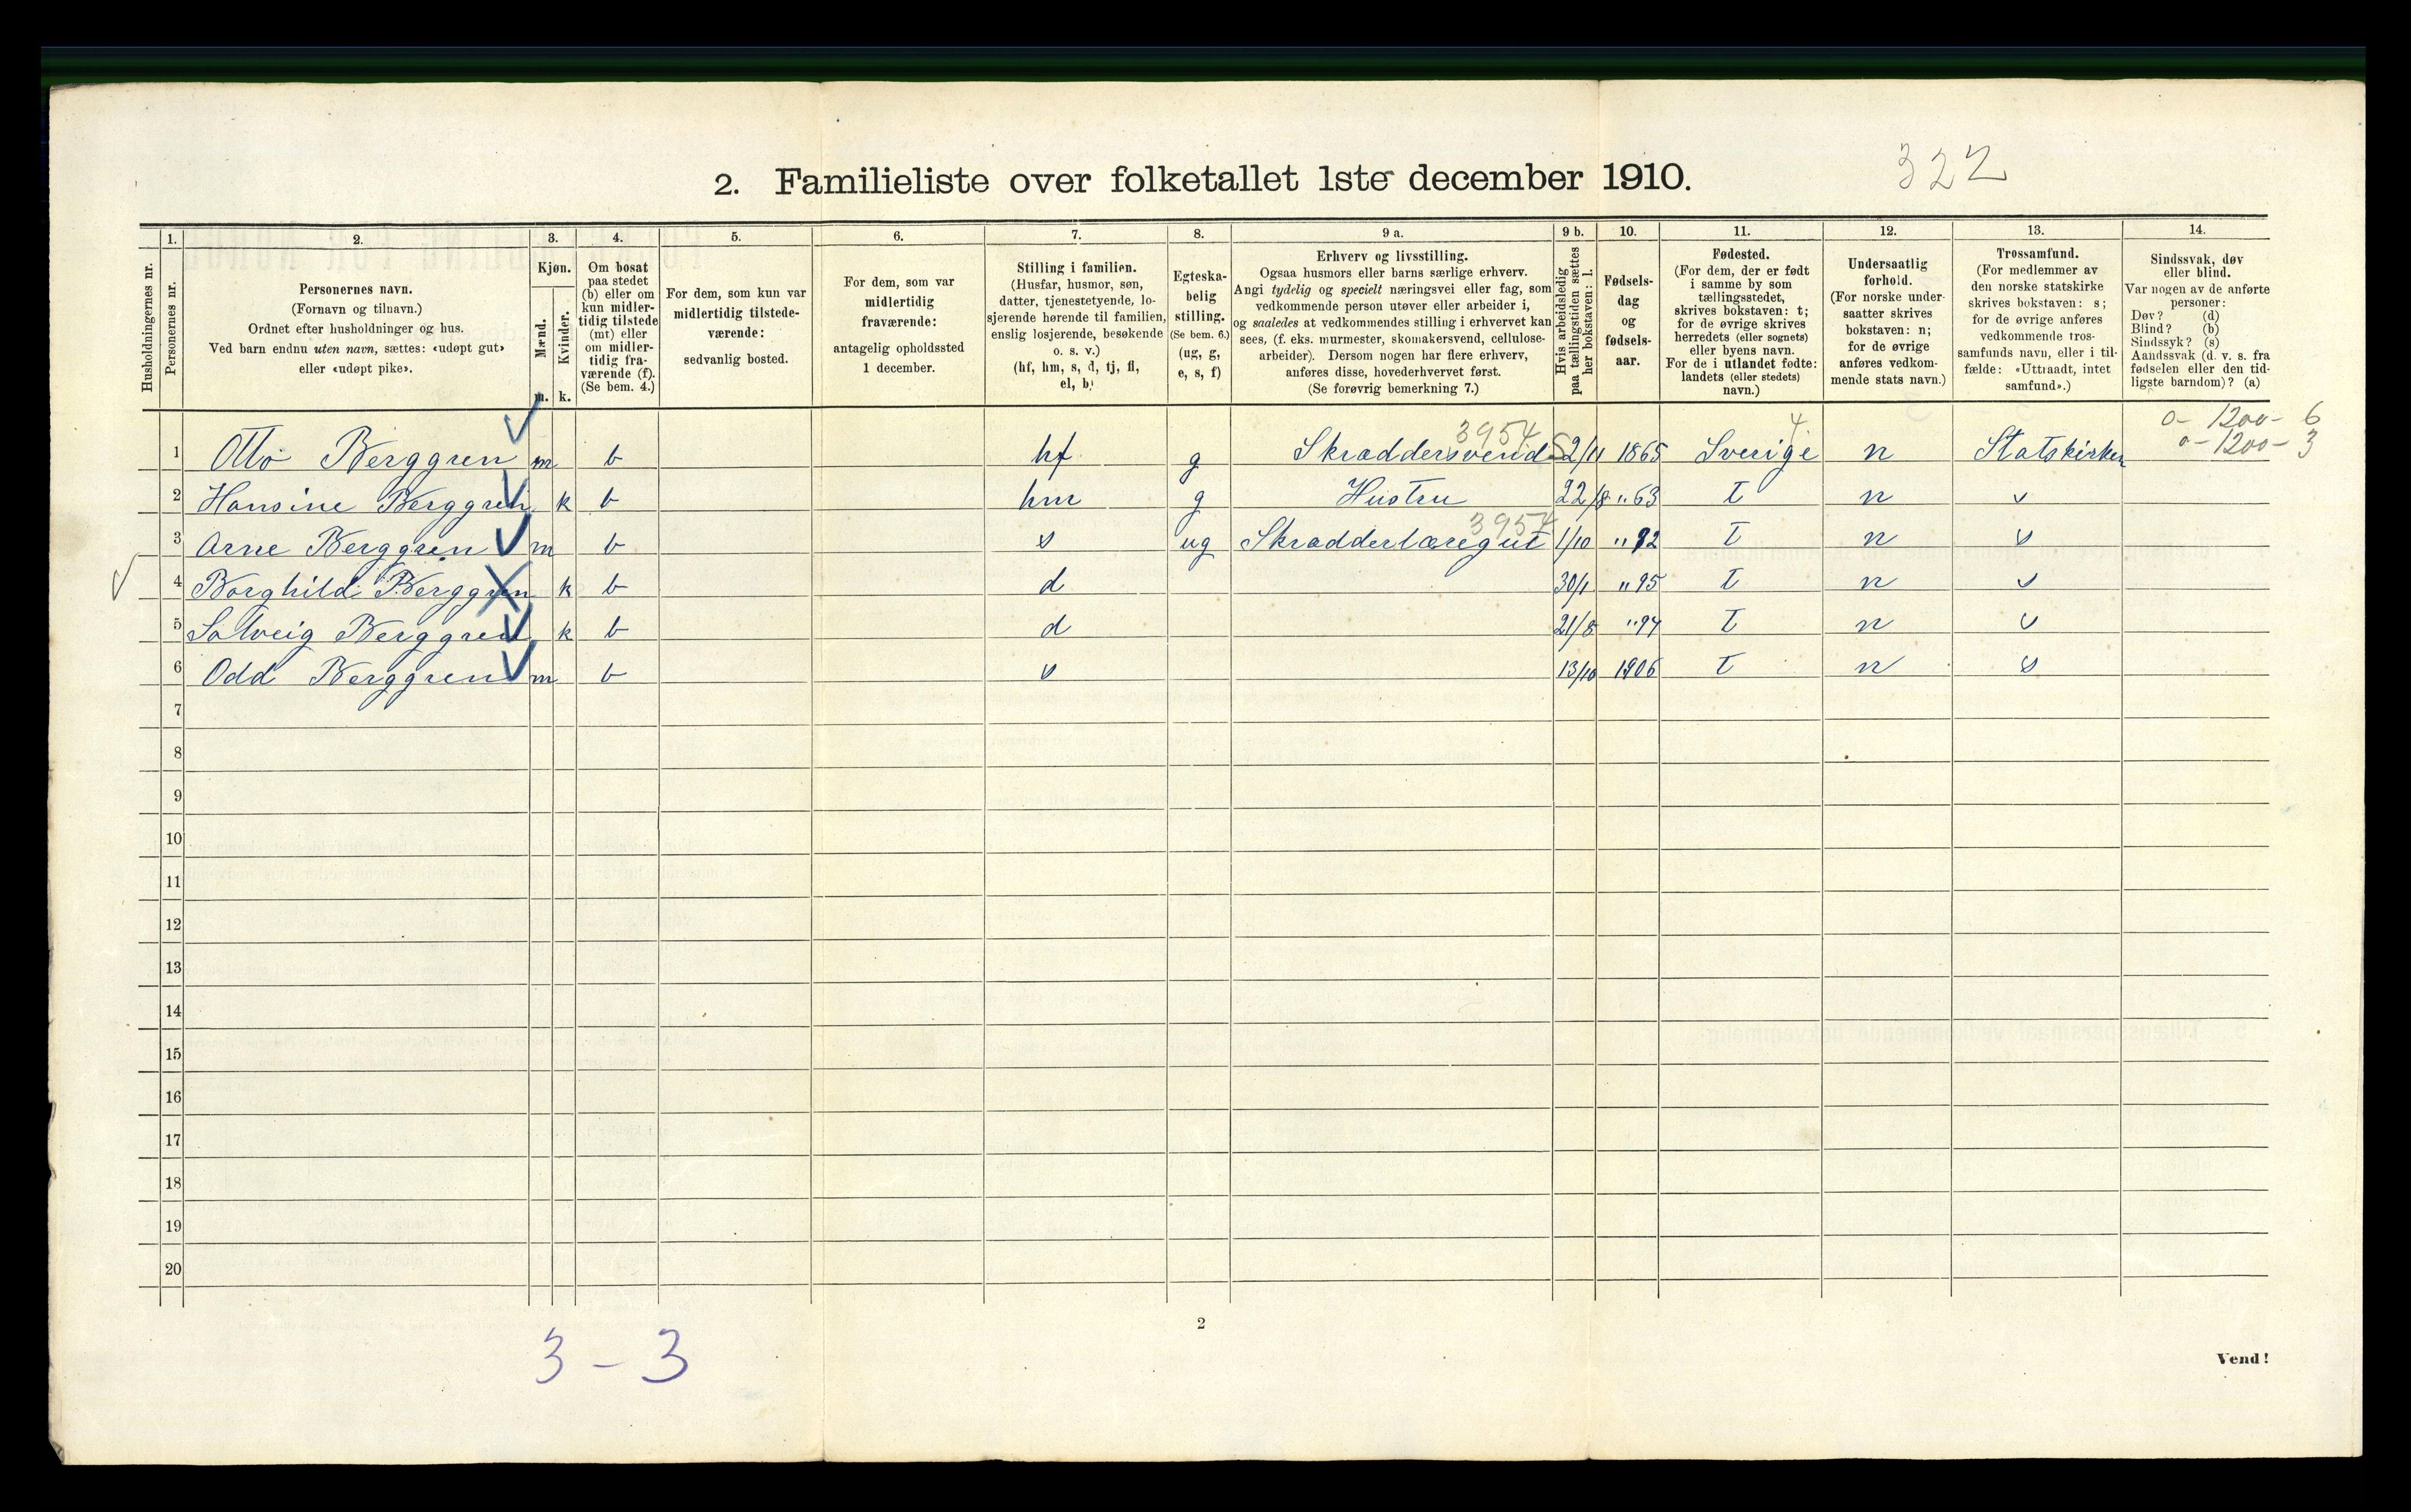 322
2. Familieliste over folketallet 1ste december 1910.
1. 2. 3. 4. 5. 6. 7. 8. 9 a. 9 b. 10. 11. 12. 13. 14.
Husholdningernes nr.
Personernes nr.
Personernes navn.
(Fornavn og tilnavn.)
Ordnet efter husholdninger og hus.
Ved barn endnu uten navn, sættes: «udøpt gut»
eller «udøpt pike».
Kjøn.
Mænd.
Kvinder.
m. k.
Om bosat
paa stedet
(b) eller om
kun midler-
tidig tilstede
(mt) eller
om midler-
tidig fra-
værende (f).
(Se bem. 4.)
For dem, som kun var
midlertidig tilstede-
værende:
sedvanlig bosted.
For dem, som var
midlertidig
fraværende:
antagelig opholdssted
1 december.
Stilling i familien.
(Husfar, husmor, søn,
datter, tjenestetyende, lo-
sjerende hørende til familien,
enslig losjerende, besøkende
o. s. v.)
(hf, hm, s, d, tj, fl,
el, b)
Egteska-
belig
stilling.
(Se bem. 6.)
(ug, g,
e, s, f)
Erhverv og livsstilling.
Ogsaa husmors eller barns særlige erhverv.
Angi tydelig og specielt næringsvei eller fag, som
vedkommende person utøver eller arbeider i,
og saaledes at vedkommendes stilling i erhvervet kan
sees, (f. eks. murmester, skomakersvend, cellulose-
arbeider). Dersom nogen har flere erhverv,
anføres disse, hovederhvervet først.
(Se forøvrig bemerkning 7.)
Hvis arbeidsledig
paa tællingstiden sættes
her bokstaven: l.
Fødsels-
dag
og
fødsels-
aar.
Fødested.
(For dem, der er født
i samme by som
tællingsstedet,
skrives bokstaven: t;
for de øvrige skrives
herredets (eller sognets)
eller byens navn.
For de i utlandet fødte:
landets (eller stedets)
navn.)
Undersaatlig
forhold.
(For norske under-
saatter skrives
bokstaven: n;
for de øvrige
anføres vedkom-
mende stats navn.)
Trossamfund.
(For medlemmer av
den norske statskirke
skrives bokstaven: s;
for de øvrige anføres
vedkommende tros-
samfunds navn, eller i til-
fælde: «Uttraadt, intet
samfund».)
Sindssvak, døv
eller blind.
Var nogen av de anførte
personer:
Døv? (d)
Blind? (b)
Sindssyk? (s)
Aandssvak (d. v. s. fra
fødselen eller den tid-
ligste barndom)? (a)
0 - 1200 - 6
0 - 1200 - 3
3954 4
1 Otto Berggren m b hf g Skraddersvend 2/11 1865 Sverige n Statskirken
2 Hansine Berggren k b hm g Hustru 22/8 "63 t n
3954
3 Arne Berggren m b s ug Skradderlæregut 1/10 "92 t n
4 Borghild Berggren k b d 30/1 "95 t n
5 Solveig Berggren k b d 21/8 "97 t n
6 Odd Berggren m b s 13/10 1906 t n
7
8
9
10
11
12
13
14
15
16
17
18
19
20
2
3 - 3
Vend!